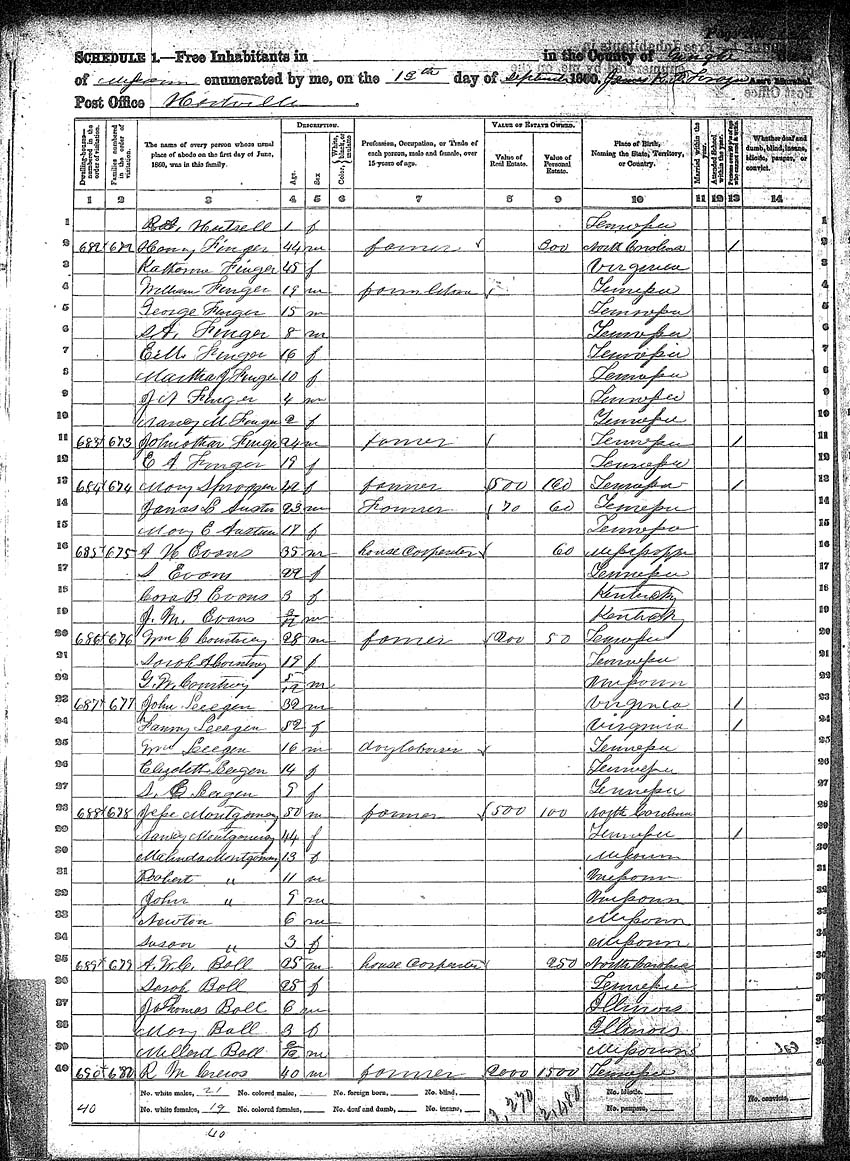 SCHEDULE 1.—Free Inhabitants in in the County of Wright State
of Missouri enumerated by me, on the 13th day of September 1860.
Post Office Hartville
DESCRIPTION.
VALUE OF ESTATE OWNED.
Dwelling-houses—numbered in the order of visitation.
Families numbered in the order of visitation.
The name of every person whose usual place of abode on the first day of June, 1860, was in this family.
Age.
Sex
Color, White, black, or mulatto
Profession, Occupation, or Trade of each person, male and female, over 15 years of age.
Value of Real Estate.
Value of Personal Estate.
Place of Birth, Naming the State, Territory, or Country.
Married within the year.
Attended School within the year.
Whether deaf and dumb, blind, insane, idiotic, pauper, or convict.
1 2 3 4 5 6 7 8 9 10 11 12 13 14
1 1 f Tennessee 1
2 682 672 Finger 44 m farmer 300 North Carolina 1 2
3 Katherine Finger 45 f Virginia 3
4 William Finger 19 m Tennessee 4
5 George Finger 15 m Tennessee 5
6 Finger 8 m Tennessee 6
7 Finger 16 f Tennessee 7
8 Martha J Finger 10 f Tennessee 8
9 J A Finger 4 m Tennessee 9
10 Nancy M Finger 2 f Tennessee 10
11 683 673 Johnathan Finger 24 m farmer Tennessee 1 11
12 E A Finger 19 f Tennessee 12
13 684 674 Mary 42 f farmer 500 160 Tennessee 1 13
14 James E Austin 23 m Farmer 70 60 Tennessee 14
15 Mary E Austin 17 f Tennessee 15
16 685 675 A N Evans 35 m house Carpenter 60 Mississippi 16
17 S Evans 22 f Tennessee 17
18 Cora B Evans 3 f Kentucky 18
19 J. M. Evans m Kentucky 19
20 686 676 Wm C Courtney 28 m farmer 200 50 Tennessee 20
21 Sarah A Courtney 19 f Tennessee 21
22 G. W. Courtney 5/12 m Missouri 22
23 687 677 John 32 m Virginia 1 23
24 Fanny 52 f Virginia 1 24
25 Wm 16 m day laborer Tennessee 25
26 Elizabeth 14 f Tennessee 26
27 9 f Tennessee 27
28 688 678 Jesse Montgomery 50 m farmer 500 100 North Carolina 28
29 Nancy Montgomery 44 f Tennessee 1 29
30 Malinda Montgomery 13 f Missouri 30
31 Robert " 11 m Missouri 31
32 John " 9 m Missouri 32
33 Newton 6 m Missouri 33
34 Susan " 3 f Missouri 34
35 689 679 A. W. C. Ball 25 m house Carpenter 250 North Carolina 35
36 Sarah Ball 25 f Tennessee 36
37 Thomas Ball 6 m Illinois 37
38 Mary Ball 3 f Illinois 38
39 Millard Ball m Missouri 39
40 690 680 R M Crews 40 m farmer 2000 1500 Tennessee 40
No. white males, 21 No. colored males, No. foreign born, No. blind, No. idiotic,
40 No. white females, 19 No. colored females, No. deaf and dumb, No. insane, No. paupers, No. convicts,
40